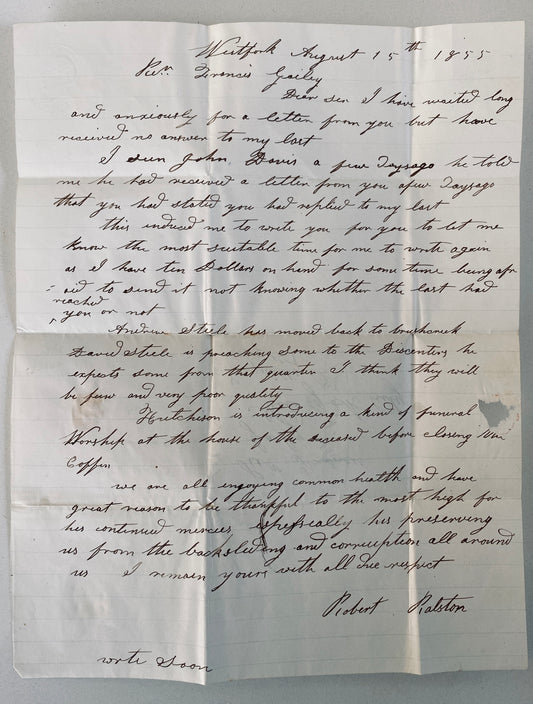 Westfork August 15th 1855
Revn Francis Gailey
Dear Ser I have waited long
and anxiously for a letter from you but have
received no answer to my last
I seen John Davis a few Daysago he told
me he had received a letter from you afew Daysago
that you had stated you had replied to my last
this induced me to write you for you to let me
know the most suitable time for me to write again
as I have ten Dollars on hand for some time being afr
aid to send it not knowing whether the last had
reached
you or not
Andrew Steele has moved back to brushcreek
David Steele is preaching some to the Discenters he
expects some from that quarter I think they will
be few and very poor quality
Hutcheson is introducing a kind of funeral
Worship at the house of the deceased before closing the
Coffin
we are all engoying common health and have
great reason to be thankful to the most high for
his continued mercies, espessically his preserving
us from the backsliding and corruption all around
us I remain yours with all due respect
Robert Ralston
write Soon